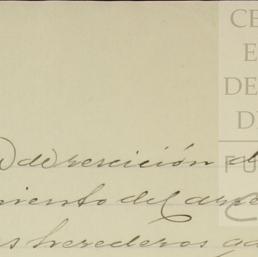 CE
E
DE
D
FU
C
) de rescición d
miento del arre
s herederos qu